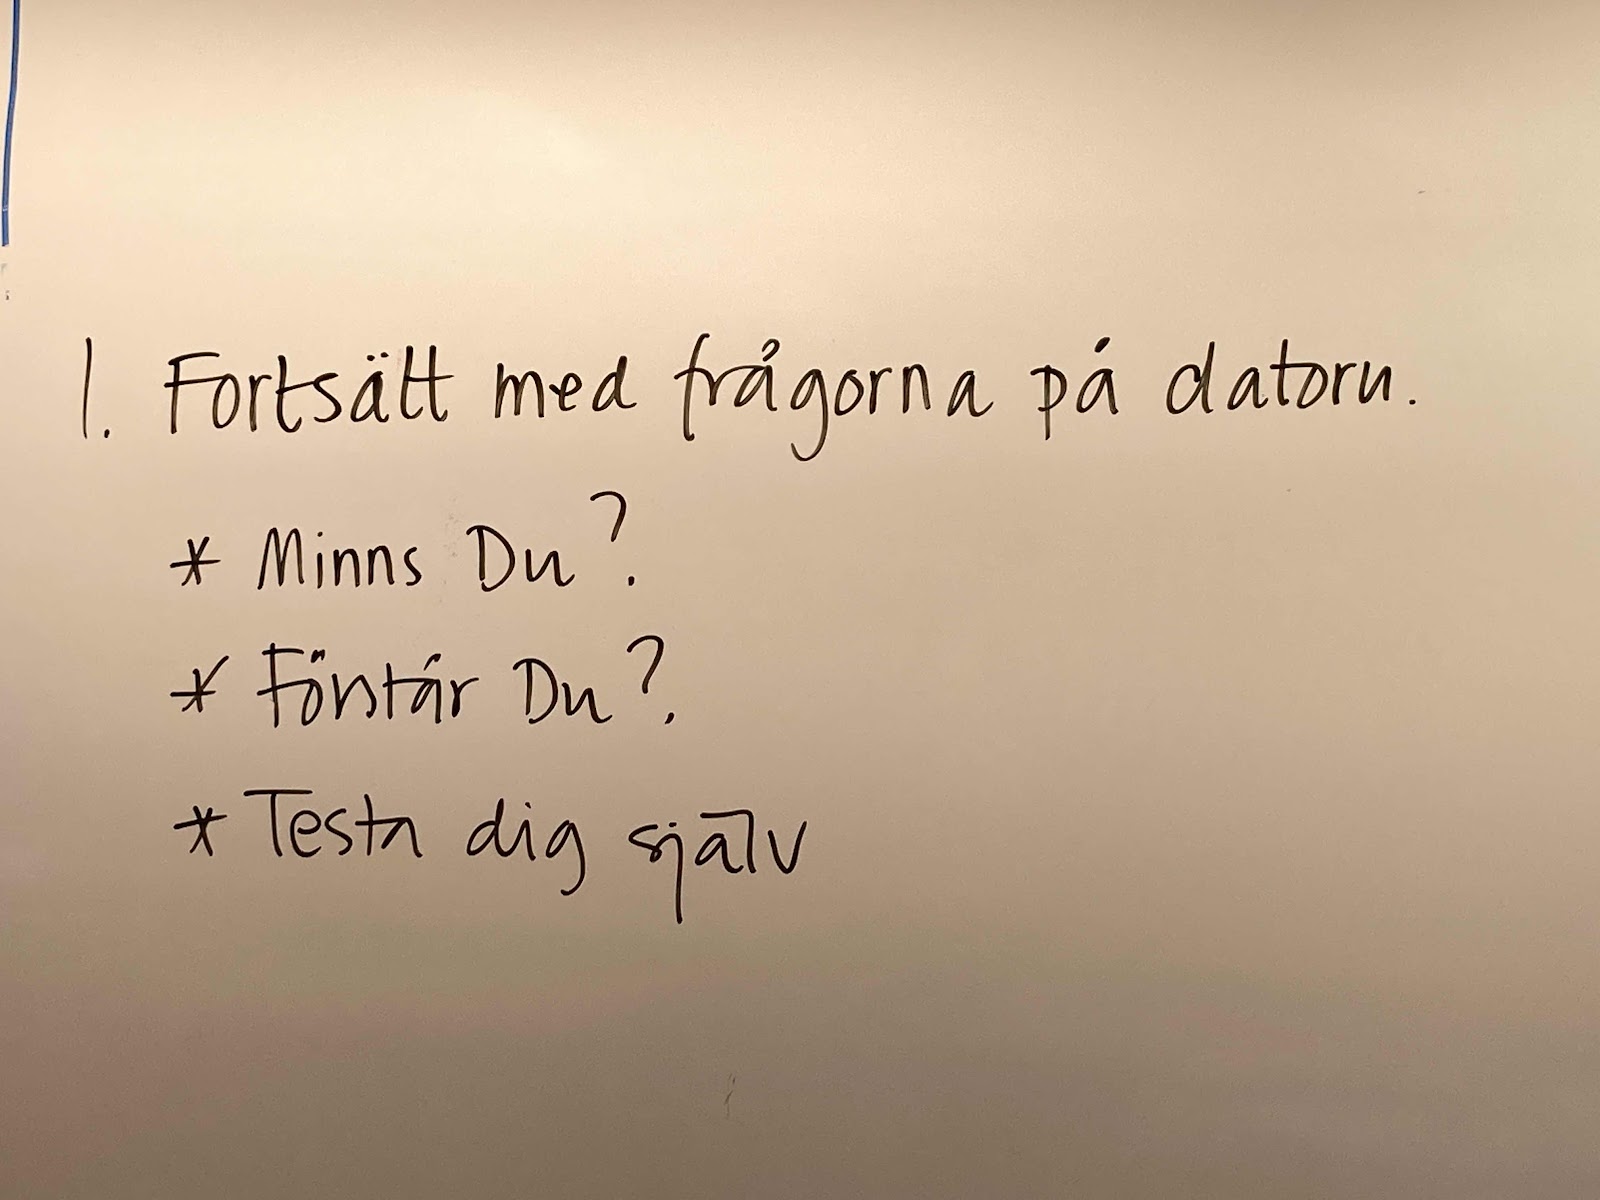 1. Fortsätt med frågorna på datorn.
* Minns Du?
* Förstår Du?
* Testa dig själv